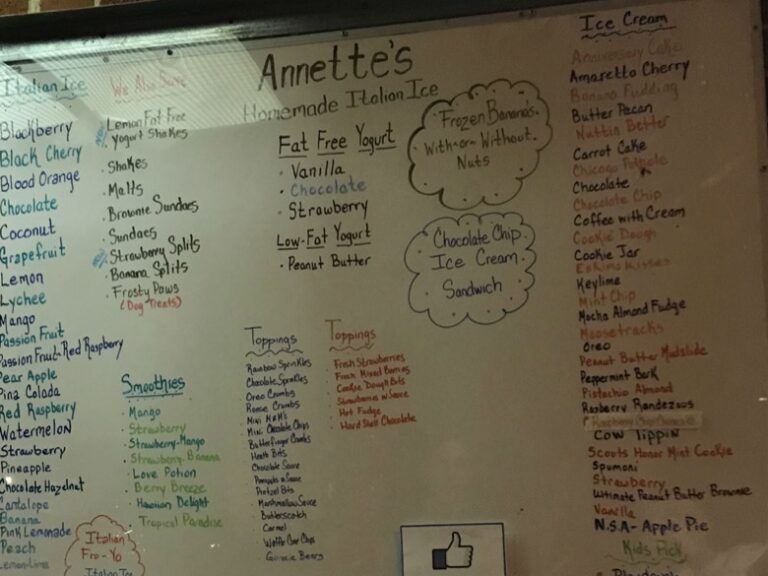 Annette's
Homemade Italian Ice
Italian Ice
Blackberry
Black Cherry
Blood Orange
Chocolate
Coconut
Grapefruit
Lemon
Lychee
Mango
Passion Fruit
Passion Fruit-Red Raspberry
Pear Apple
Pina Colada
Red Raspberry
Watermelon
Strawberry
Pineapple
Chocolate Hazelnut
Cantalope
Banana
Pink Lemonade
Peach
Lemon-Lime
We Also Serve
Lemon Fat Free
Yogurt Shakes
Shakes
Malts
Brownie Sundaes
Sundaes
Strawberry Splits
Banana Splits
Frosty Paws
(Dog Treats)
Smoothies
Mango
Strawberry
Strawberry-Mango
Strawberry-Banana
Love Potion
Berry Breeze
Hawiian Delight
Tropical Paradise
Italian
Fro-Yo
Italian Ice
Fat Free Yogurt
Vanilla
Chocolate
Strawberry
Low-Fat Yogurt
Peanut Butter
Frozen Banana's
With-or-Without
Nuts
Chocolate Chip
Ice Cream
Sandwich
Toppings
Rainbow Sprinkles
Chocolate Sprinkles
Oreo Crumbs
Reese Crumbs
Mini M&M's
Mini Chocolate Chips
Butterfinger Crumbs
Heath Bits
Chocolate Sauce
Peanuts
Pretzel Bits
Marshmallow Sauce
Butterscotch
Carmel
Waffle Cone Chips
Gummie Bears
Toppings
Fresh Strawberries
Fresh Mixed Berries
Cookie Dough Bits
Strawberries w Sauce
Hot Fudge
Hard Shell Chocolate
Ice Cream
Anniversary Cake
Amaretto Cherry
Banana Pudding
Butter Pecan
Nuttin Better
Carrot Cake
Chicago Pothole
Chocolate
Chocolate Chip
Coffee with Cream
Cookie Dough
Cookie Jar
Eskimo Kisses
Keylime
Mint Chip
Mocha Almond Fudge
Moosetracks
Oreo
Peanut Butter Mudslide
Peppermint Bark
Pistachio Almond
Raspberry Randezous
Cow Tippin
Scouts Honor Mint Cookie
Spumoni
Strawberry
Ultimate Peanut Butter Brownie
Vanilla
N.S.A- Apple Pie
Kids Pick